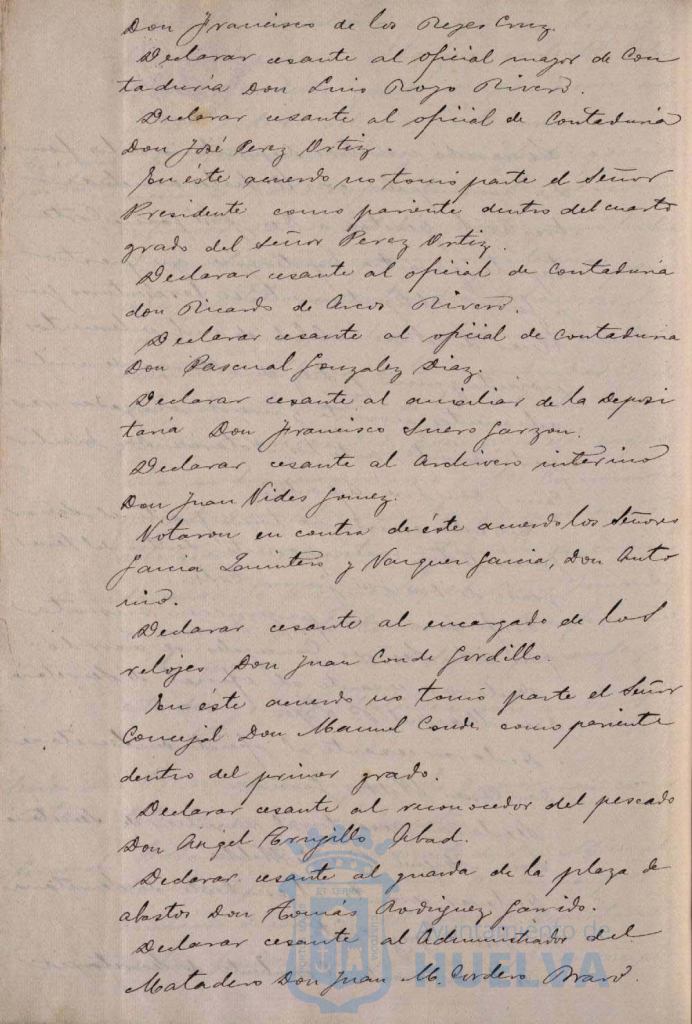 Don Francisco de los Reyes Cruz.
Declarar cesante al oficial mayor de Con
taduría Don Luis Rojo Rivero.
Declarar cesante al oficial de Contaduría
Don José Perez Ortiz.
En éste acuerdo no tomó parte el Señor
Presidente como pariente dentro del cuarto
grado del Señor Perez Ortiz.
Declarar cesante al oficial de Contaduría
don Ricardo de Arcos Rivero.
Declarar cesante al oficial de Contaduria
Don Pascual Gonzalez Diaz.
Declarar cesante al auxiliar de la Deposi
taría Don Francisco Suero Garzon.
Declarar cesante al Archivero interino
Don Juan Vides Gomez.
Votaron en contra de éste acuerdo los Señores
Garcia Quintero y Vazquez Garcia, Don Anto
nio.
Declarar cesante al encargado de los
relojes Don Juan Conde Gordillo.
En éste acuerdo no tomó parte el Señor
Concejal Don Manuel Conde como pariente
dentro del primer grado.
Declarar cesante al reconocedor del pescado
Don Angel Trujillo Abad.
Declarar cesante al guarda de la plaza de
abastos Don Tomás Rodriguez Garrido.
Declarar cesante al Administrador del
Matadero Don Juan M. Cordero Bravo.
Ayuntamiento de
HUELVA